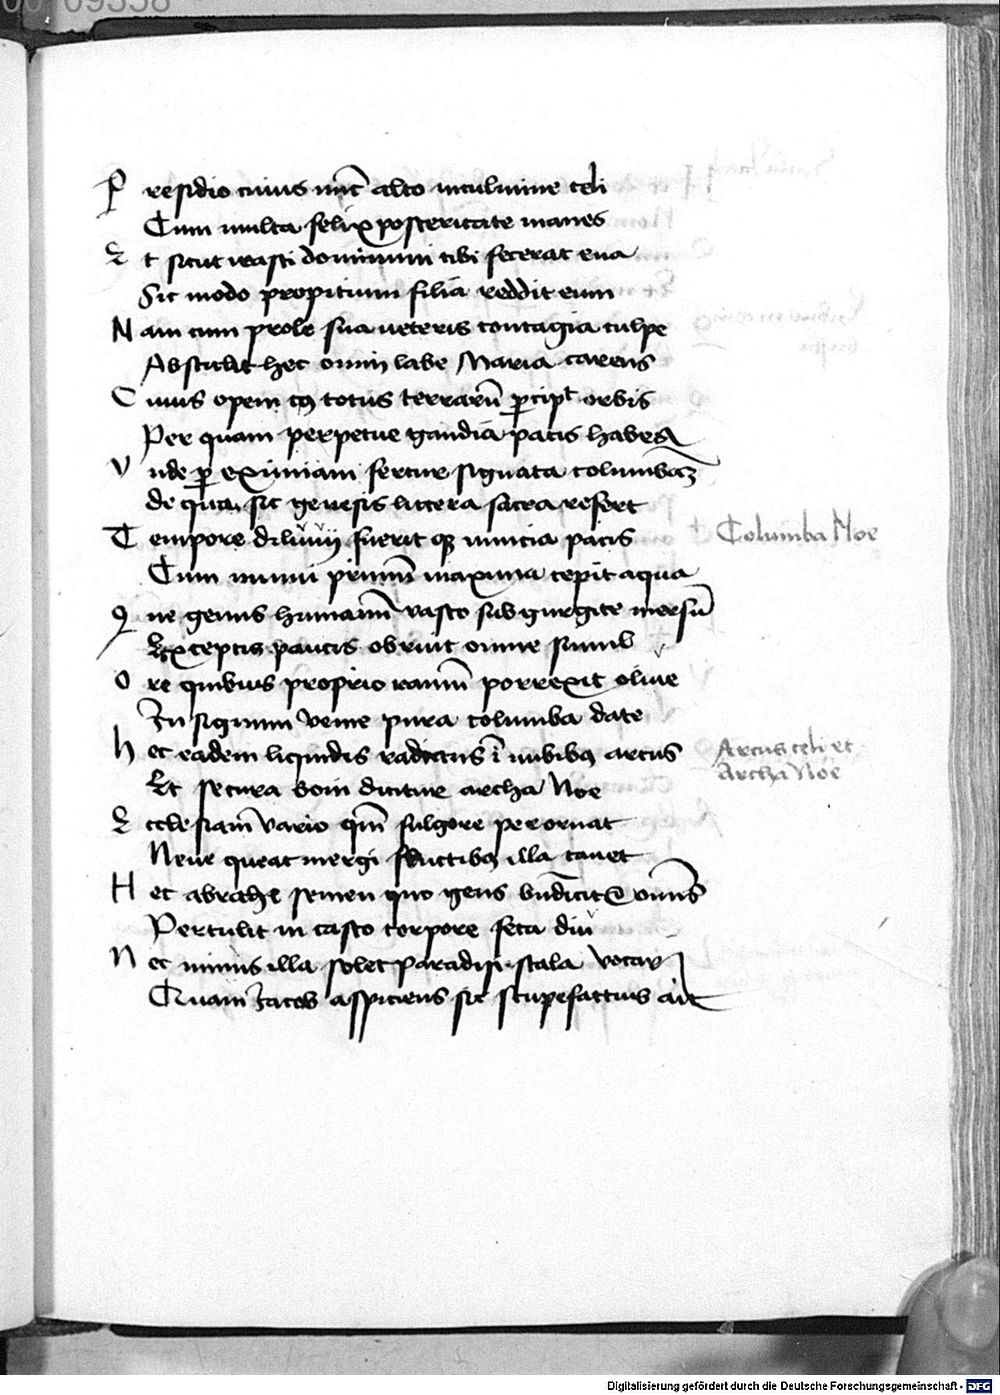 00109338
Presidio cuius nūc alto in culmine celi
Cum multa felix posteritate manes
Et sicut irasci dominum tibi fecerat eua
Sic modo propitium filia reddit eum
Nam cum prole sua ueteris contagia culpe
Abstulit hec omni labe Maria carens
Cuius opem totus terrarū ꝑcipit orbis
Per quam perpetue gaudia pacis habes
Vnde ꝑ eximiam fertur signata columbaꝫ
de qua sic genesis littera sacra refert
Tempore diluuij fuerit nuncia pacis
Columba Noe
Cum mundi primū maxima cepit aqua
ne genus humanū vasto sub gurgite mersū
Exceptis paucis obruit omne simul
Ore quibus proprio ramū porrexit oliue
In signum venie pura columba date
hec eadem liquidis radiatus ī nubibꝫ arcus
Arcus celi et
Archa Noe
Et secura boni dicitur archa Noe
Ecclesiam vario qm̄ fulgore perornat
Neue queat mergi fluctibꝫ illa cauet
Hec abrahe semen quo gens omnis
Pertulit in casto corpore feta diu
Nec minus illa solet paradisi scala vocari
Quam Iacob aspiciens sic stupefactus ait
Digitalisierung gefördert durch die Deutsche Forschungsgemeinschaft - DFG